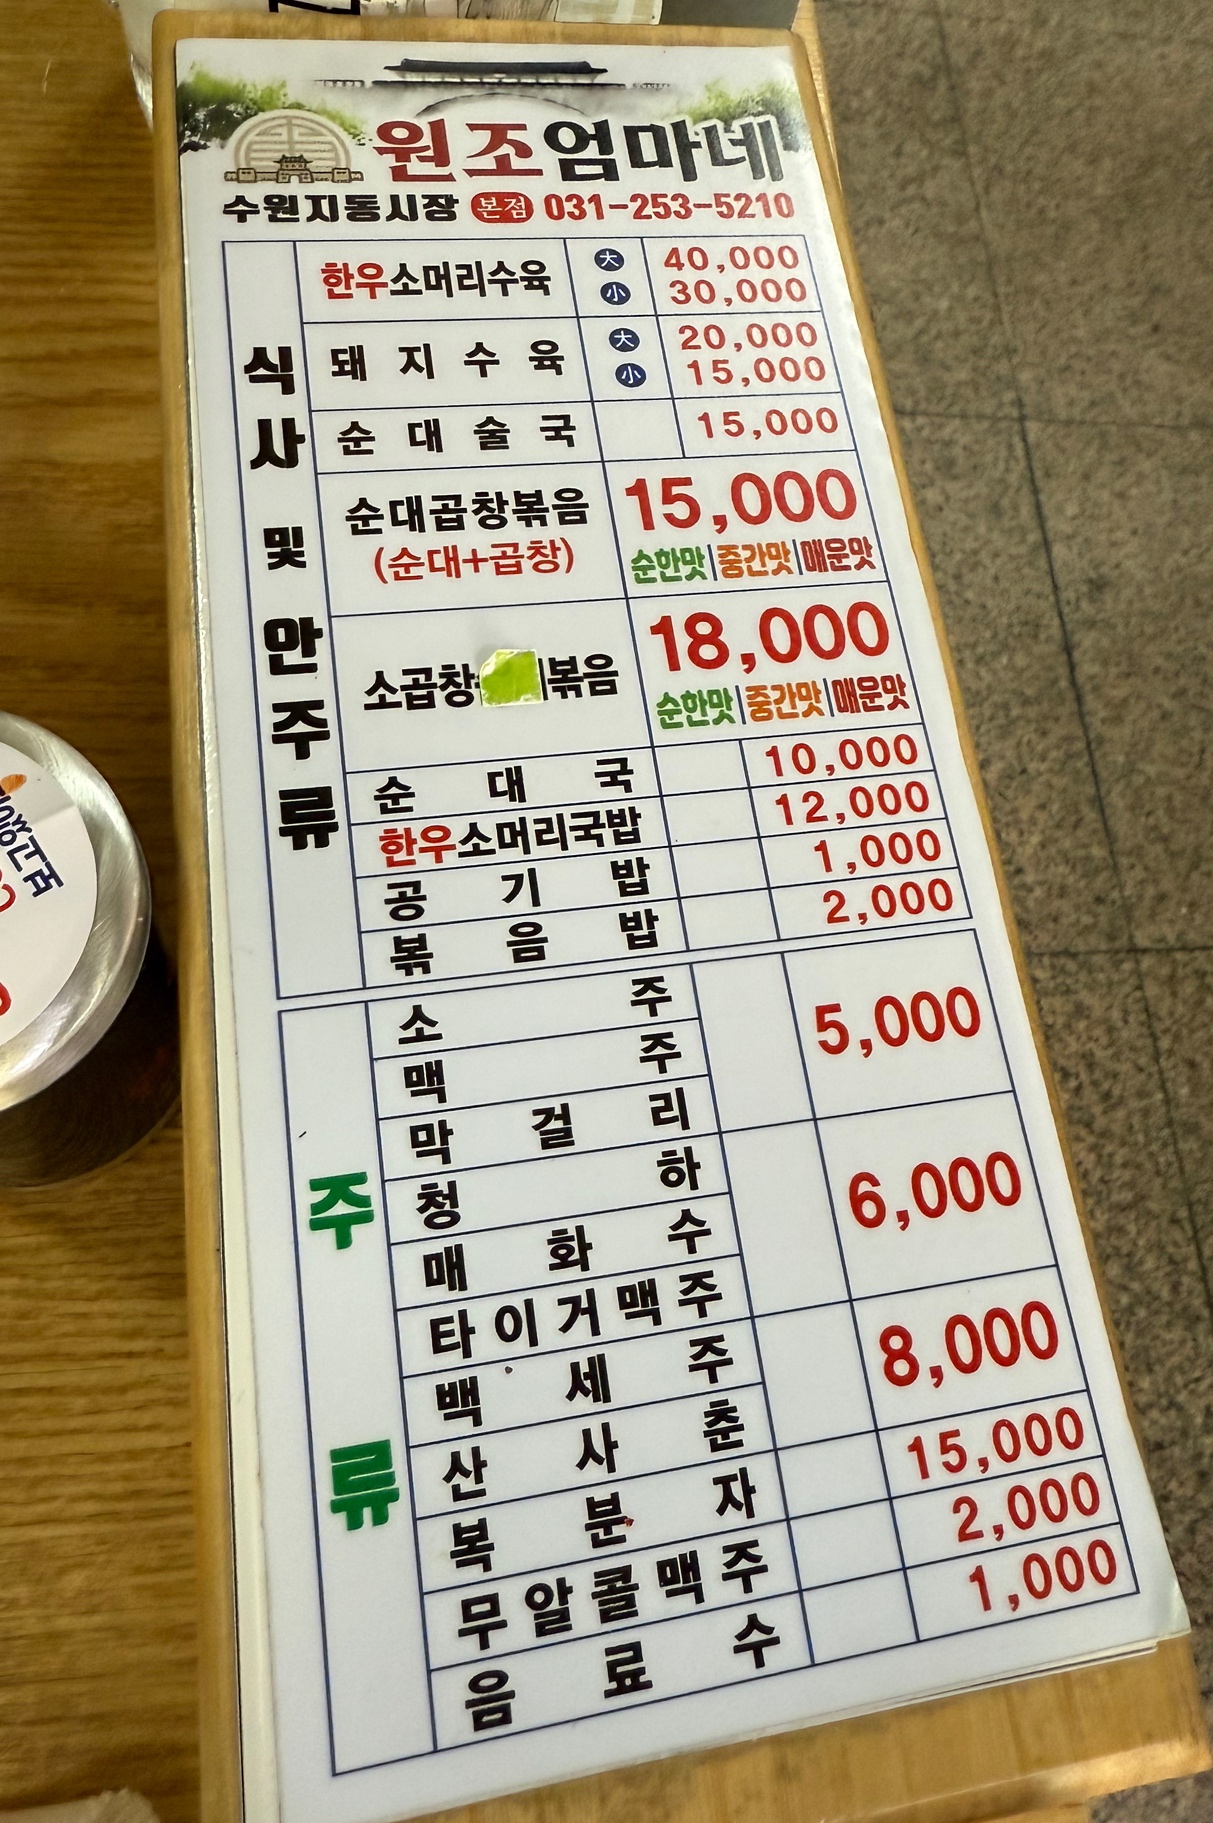 원조엄마네
수원지동시장 본점 031-253-5210
식사 및 안주류
한우소머리수육 大 40,000
小 30,000
돼지수육 大 20,000
小 15,000
순대술국 15,000
순대곱창볶음 15,000
(순대+곱창) 순한맛|중간맛|매운맛
소곱창 볶음 18,000
순한맛|중간맛|매운맛
순대국 10,000
한우소머리국밥 12,000
공기밥 1,000
볶음밥 2,000
주류
소주
맥주 5,000
막걸리
청하
매화수 6,000
타이거맥주
백세주
산사춘 8,000
복분자 15,000
무알콜맥주 2,000
음료수 1,000